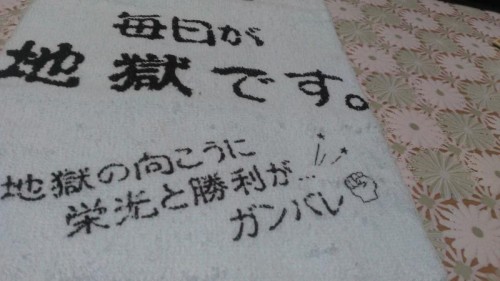 毎日が
地獄です。
地獄の向こうに
栄光と勝利が…
ガンバレ